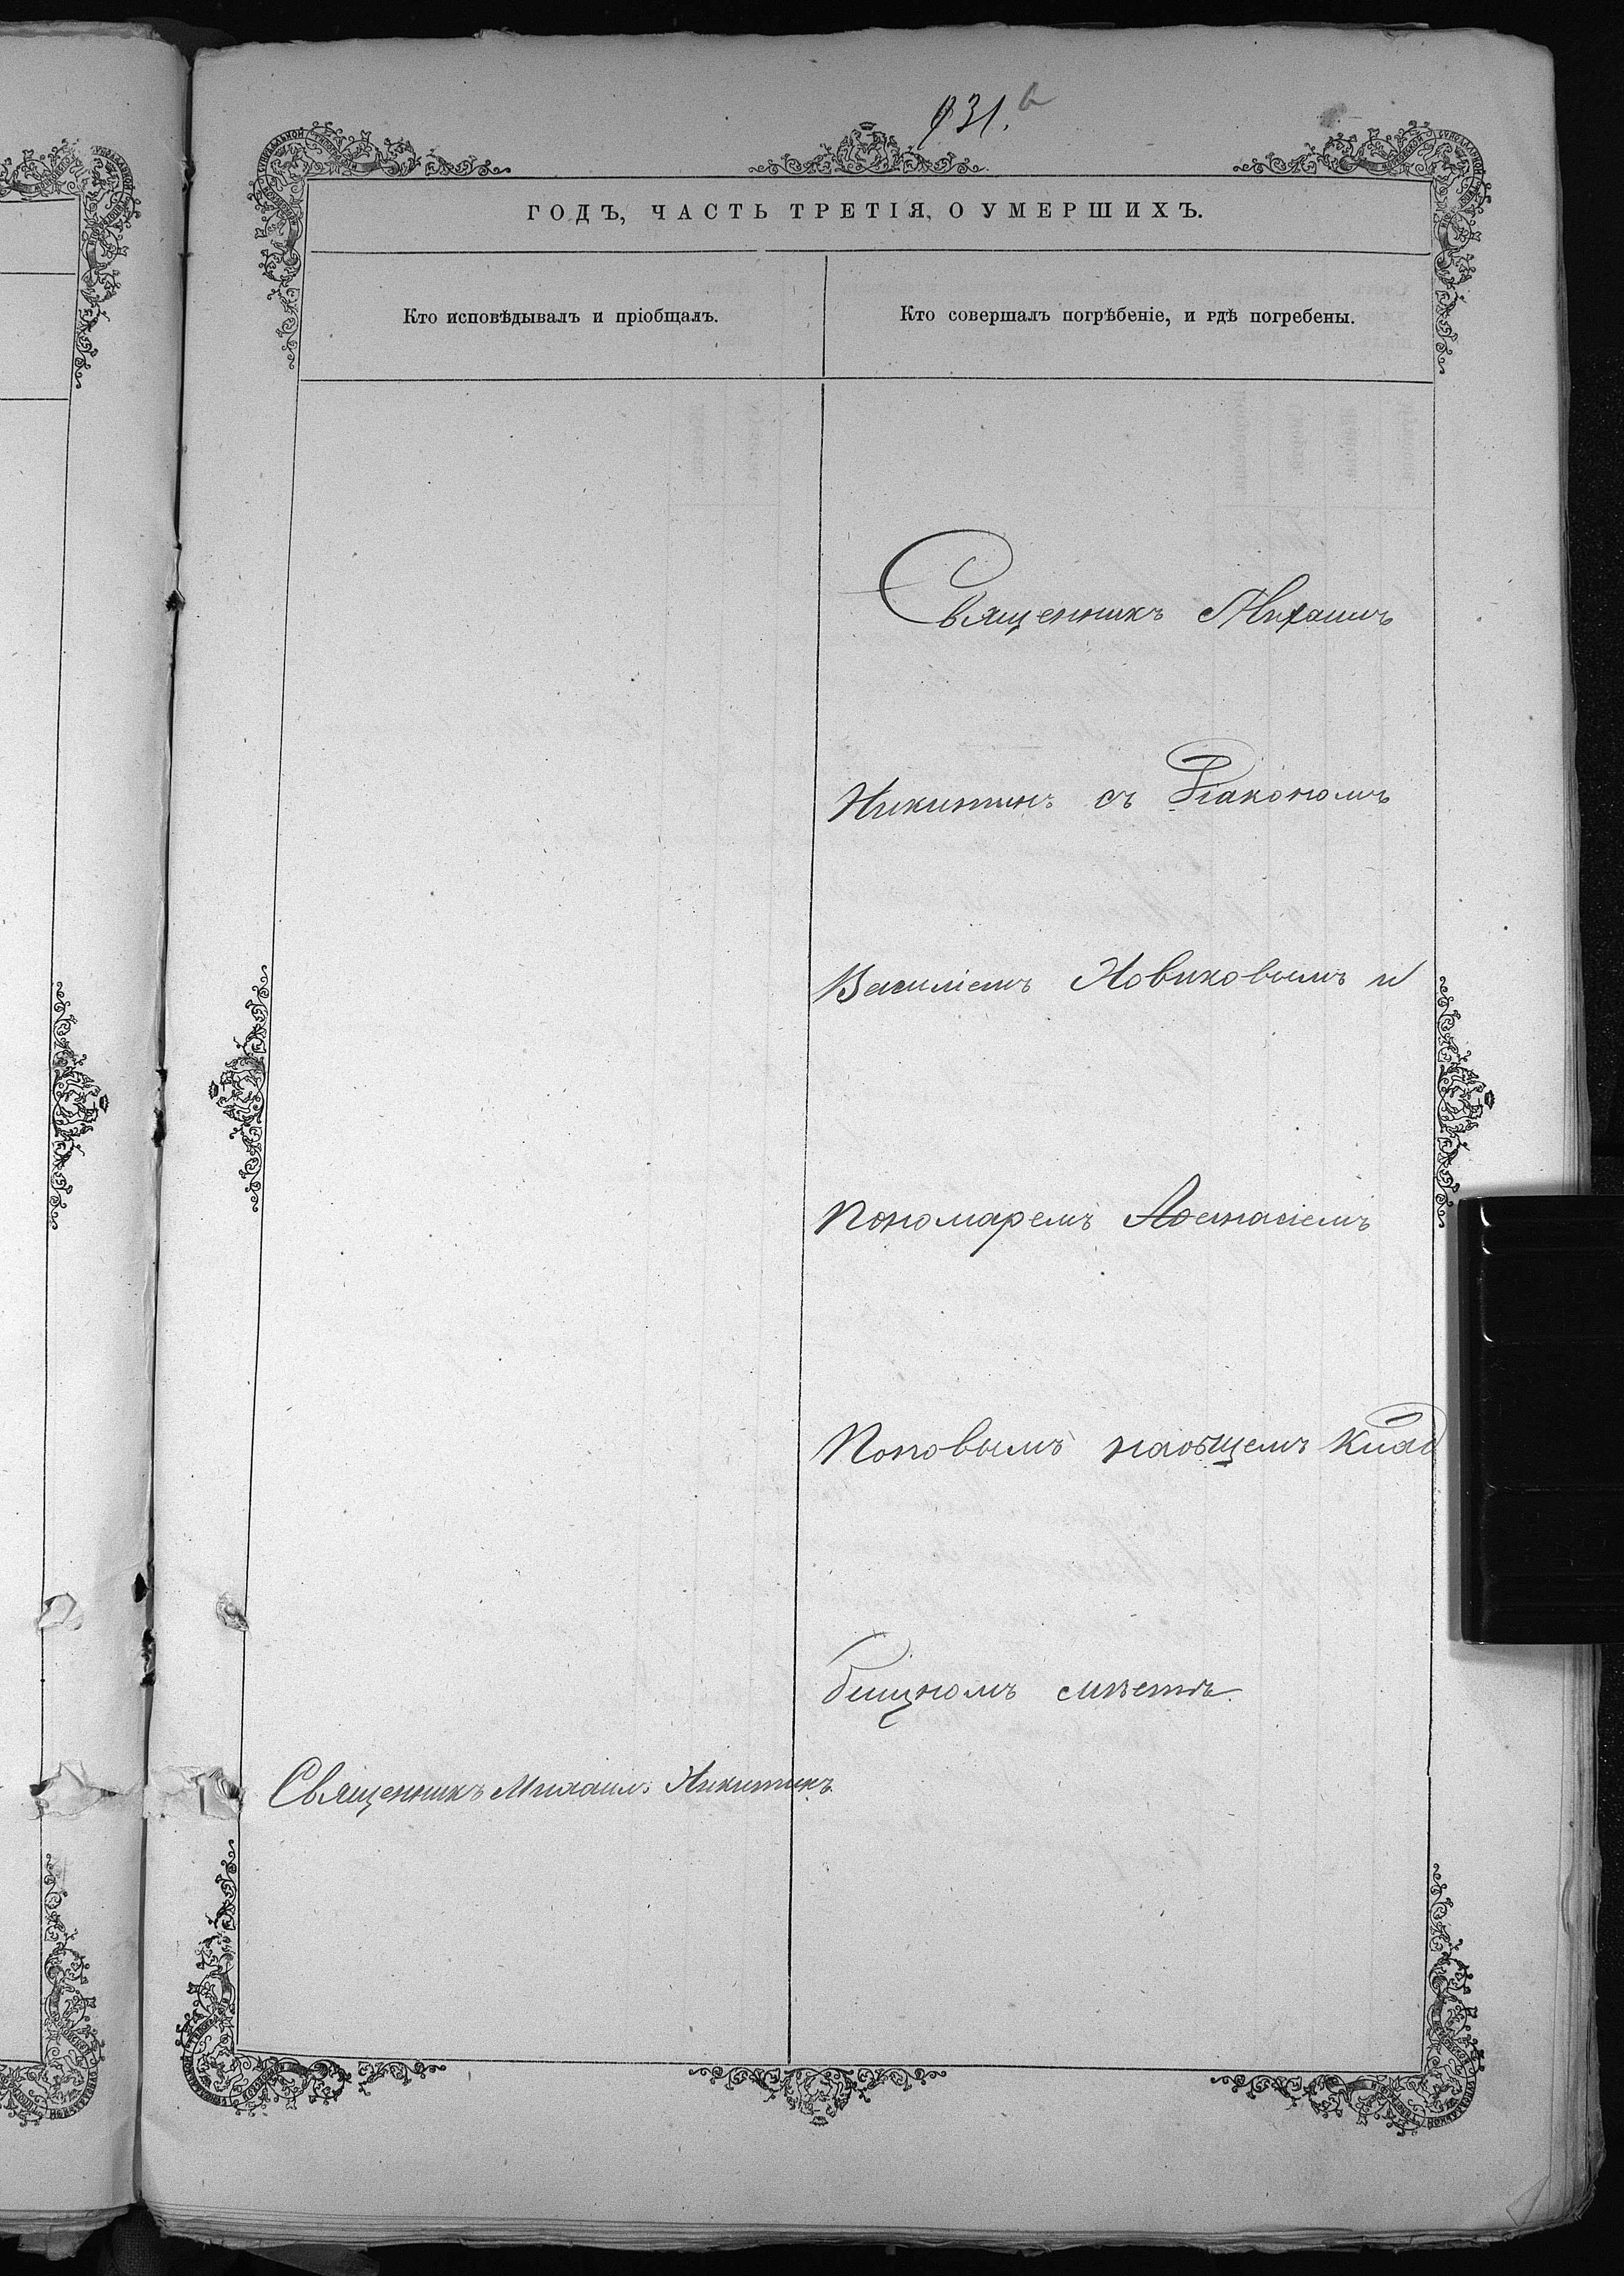 931.
ГОДЪ, ЧАСТЬ ТРЕТІЯ, О УМЕРШИХЪ.
Кто исповѣдывалъ и пріобщалъ.
Кто совершалъ погрѣбеніе, и гдѣ погребены.
Священникъ Михаилъ
Никитинъ съ Діакономъ
Василіемъ Новиковымъ и
Пономаремъ Аѳанасіемъ
Поповымъ наобщемъ клад
бищномъ мѣстѣ.
Священникъ Михаилъ Никитинъ